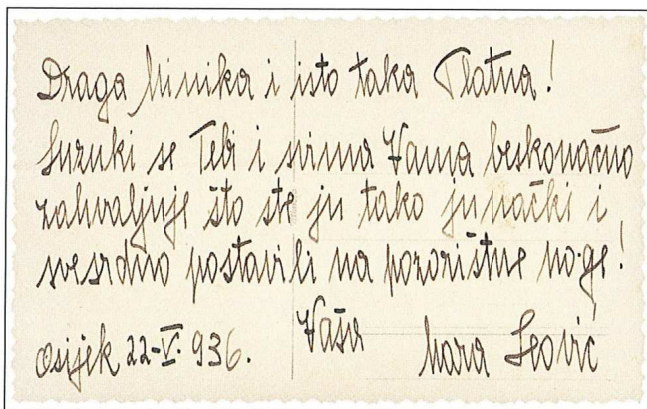 Draga Minika i isto taka Zlatna!
Suzuki se Tebi i svima Vama beskonačno
zahvaljuje što ste ju tako junački i
svesrdno postavili na pozorištne noge!
Osijek 22-V. 936. Vaša Mara Leović